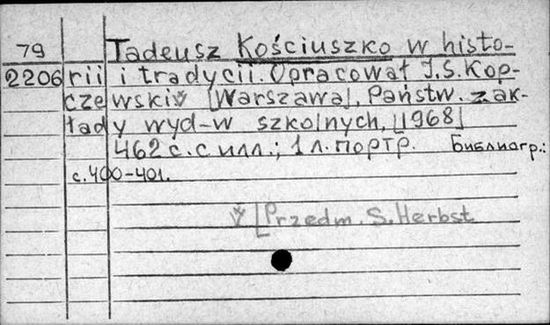 79
Tadeusz Kościuszko w histo-
2206 rii i tradycii. Opracował J.S. Kop-
czewski ꙷ [Warszawa], Państw. zak-
łady wyd-w szkolnych, [1968]
462 с. с илл.; 1 л. портр. Библиогр.:
с. 400-401.
[Przedm. S. Herbst